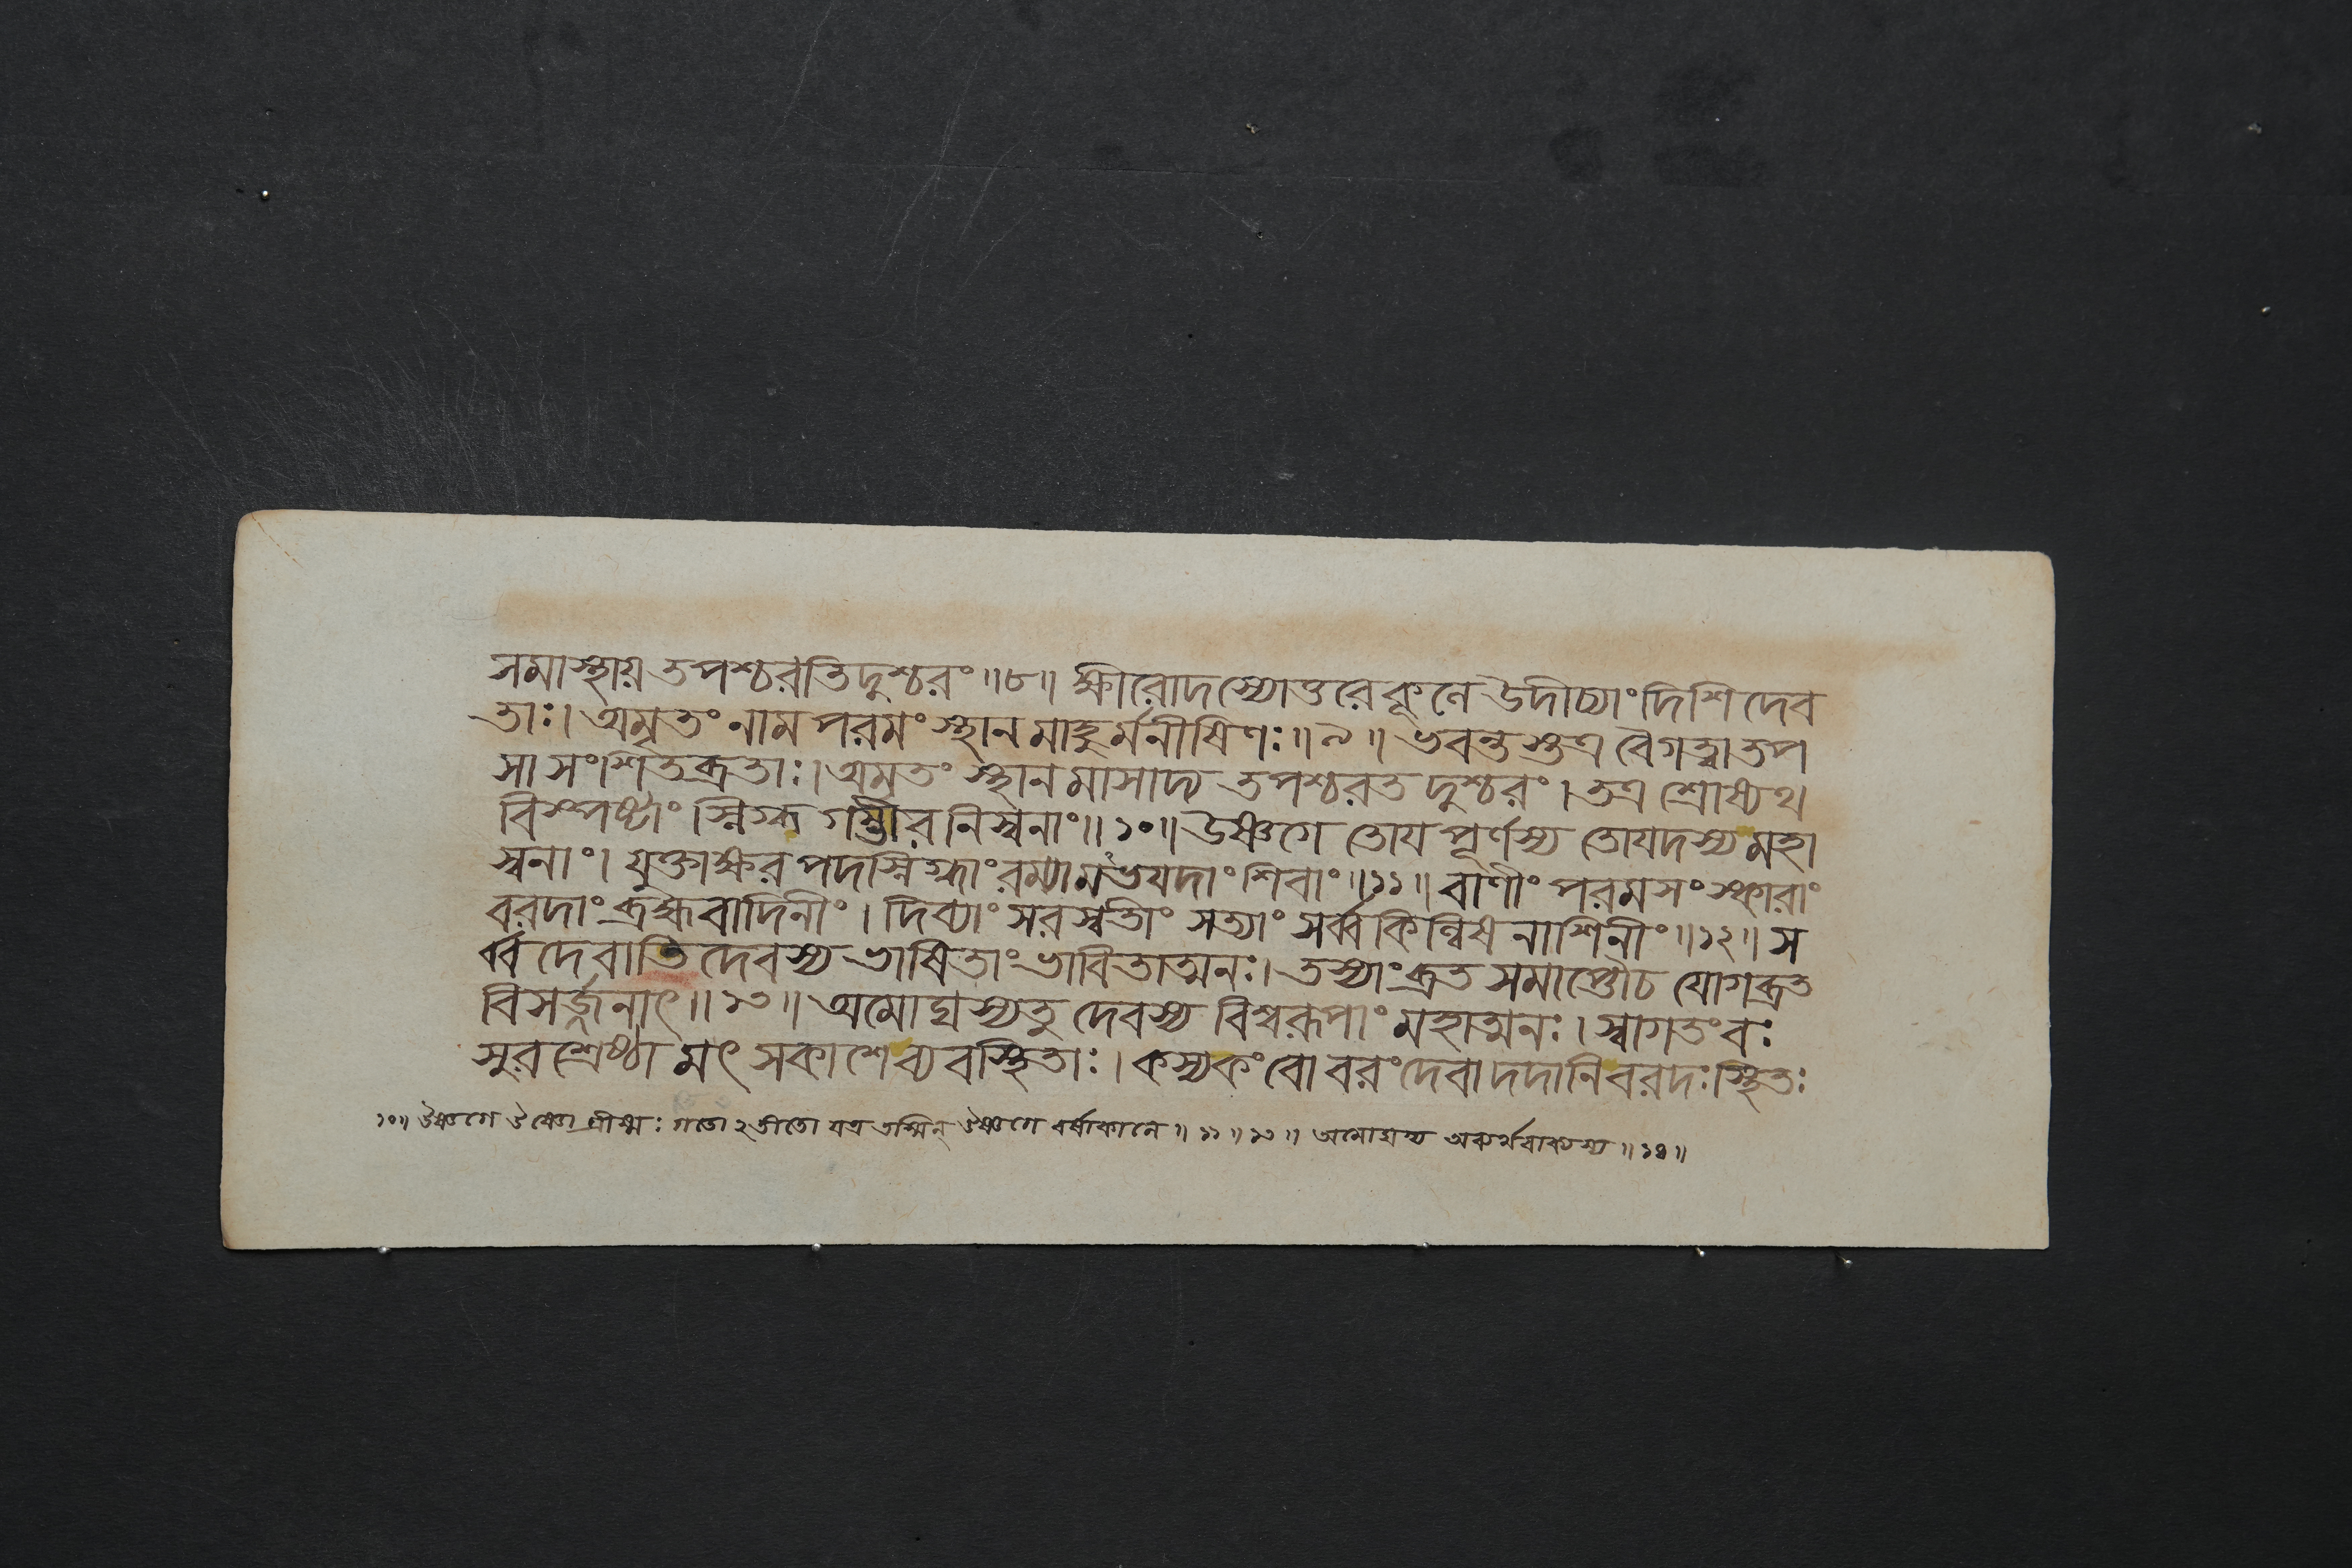 সমাস্থায় তপশ্চরতি দুশ্চরং ॥৮॥ ক্ষীরোদস্যোত্তরে কূলে উদীচ্যাং দিশি দেব
তাঃ। অমৃতং নাম পরমং স্থানমাহুর্মনীষিণঃ ॥৯॥ ভবন্তস্তত্র বৈ গত্বা তপ
সা সংশিতব্রতাঃ। অমৃতং স্থানমাসাদ্য তপশ্চরত দুশ্চরং। তত্র শ্রোষ্যথ
বিস্পষ্টাং স্নিগ্ধ গম্ভীর নিস্বনাং ॥১০॥ উষ্ণগে তোয়পূর্ণস্য তোয়দস্য মহা
স্বনাং। যুক্তাক্ষর পদস্নিগ্ধাং রম্যামভয়দাং শিবাং ॥১১॥ বাণীং পরমসংস্কারাং
বরদাং ব্রহ্মবাদিনীং। দিব্যাং সরস্বতীং সত্যাং সর্ব্ব কিল্বিষ নাশিনীং ॥১২॥ স
র্ব্ব দেবাতি দেবস্য ভাষিতাং ভাবিতাত্মনঃ। তস্যাং ব্রত সমাপ্তৌ চ যোগব্রত
বিসর্জ্জনাৎ ॥১৩॥ অমোঘস্য তু দেবস্য বিশ্বরূপাং মহাত্মনঃ। স্বাগতং বঃ
সুরশ্রেষ্ঠা মৎ সকাশে ব্যবস্থিতাঃ। কস্য কং বো বরং দেবা দদানি বরদঃ স্থিতঃ
১০॥ উষ্ণগে উষ্ণো গ্রীষ্মঃ গতোঽতীতো যত্র তস্মিন্ উষ্ণগে বর্ষাকালে ॥১১॥১৩॥ অমোঘস্য অব্যর্থবাক্যস্য ॥১৪॥